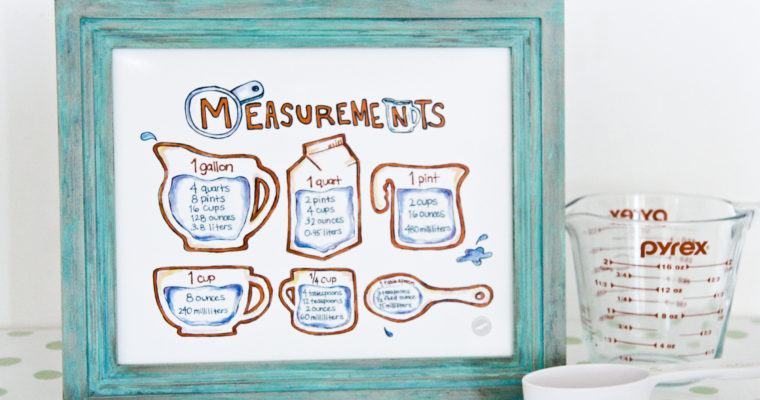 MEASUREMENTS
1 gallon
4 quarts
8 pints
16 cups
128 ounces
3.8 liters
1 quart
2 pints
4 cups
32 ounces
0.95 liters
1 pint
2 cups
16 ounces
480 milliliters
1 cup
8 ounces
240 milliliters
1/4 cup
4 tablespoons
12 teaspoons
2 ounces
60 milliliters
1 tablespoon
3 teaspoons
1/2 fluid ounce
15 milliliters
PYREX
pyrex
2 16 oz
3/4
12 oz
1/2
1 8 oz
3/4
1/4